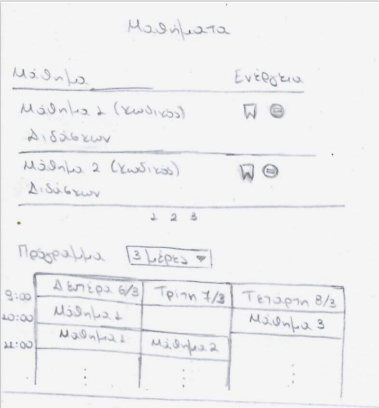 Μαθήματα
Μάθημα Ενέργεια
Μάθημα 1 (κωδικός)
Διδάσκων
Μάθημα 2 (κωδικός)
Διδάσκων
1 2 3
Πρόγραμμα 3 μέρες
Δευτέρα 6/3 Τρίτη 7/3 Τετάρτη 8/3
9:00
10:00 Μάθημα 1 Μάθημα 3
11:00 Μάθημα 1 Μάθημα 2